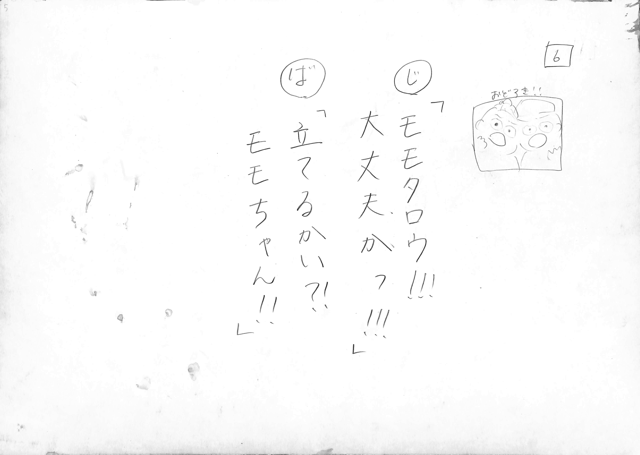 6
おどろき!!
じ
「モモタロウ!!!
大丈夫かっ!!!」
ば
「立てるかい?!
モモちゃん!!」